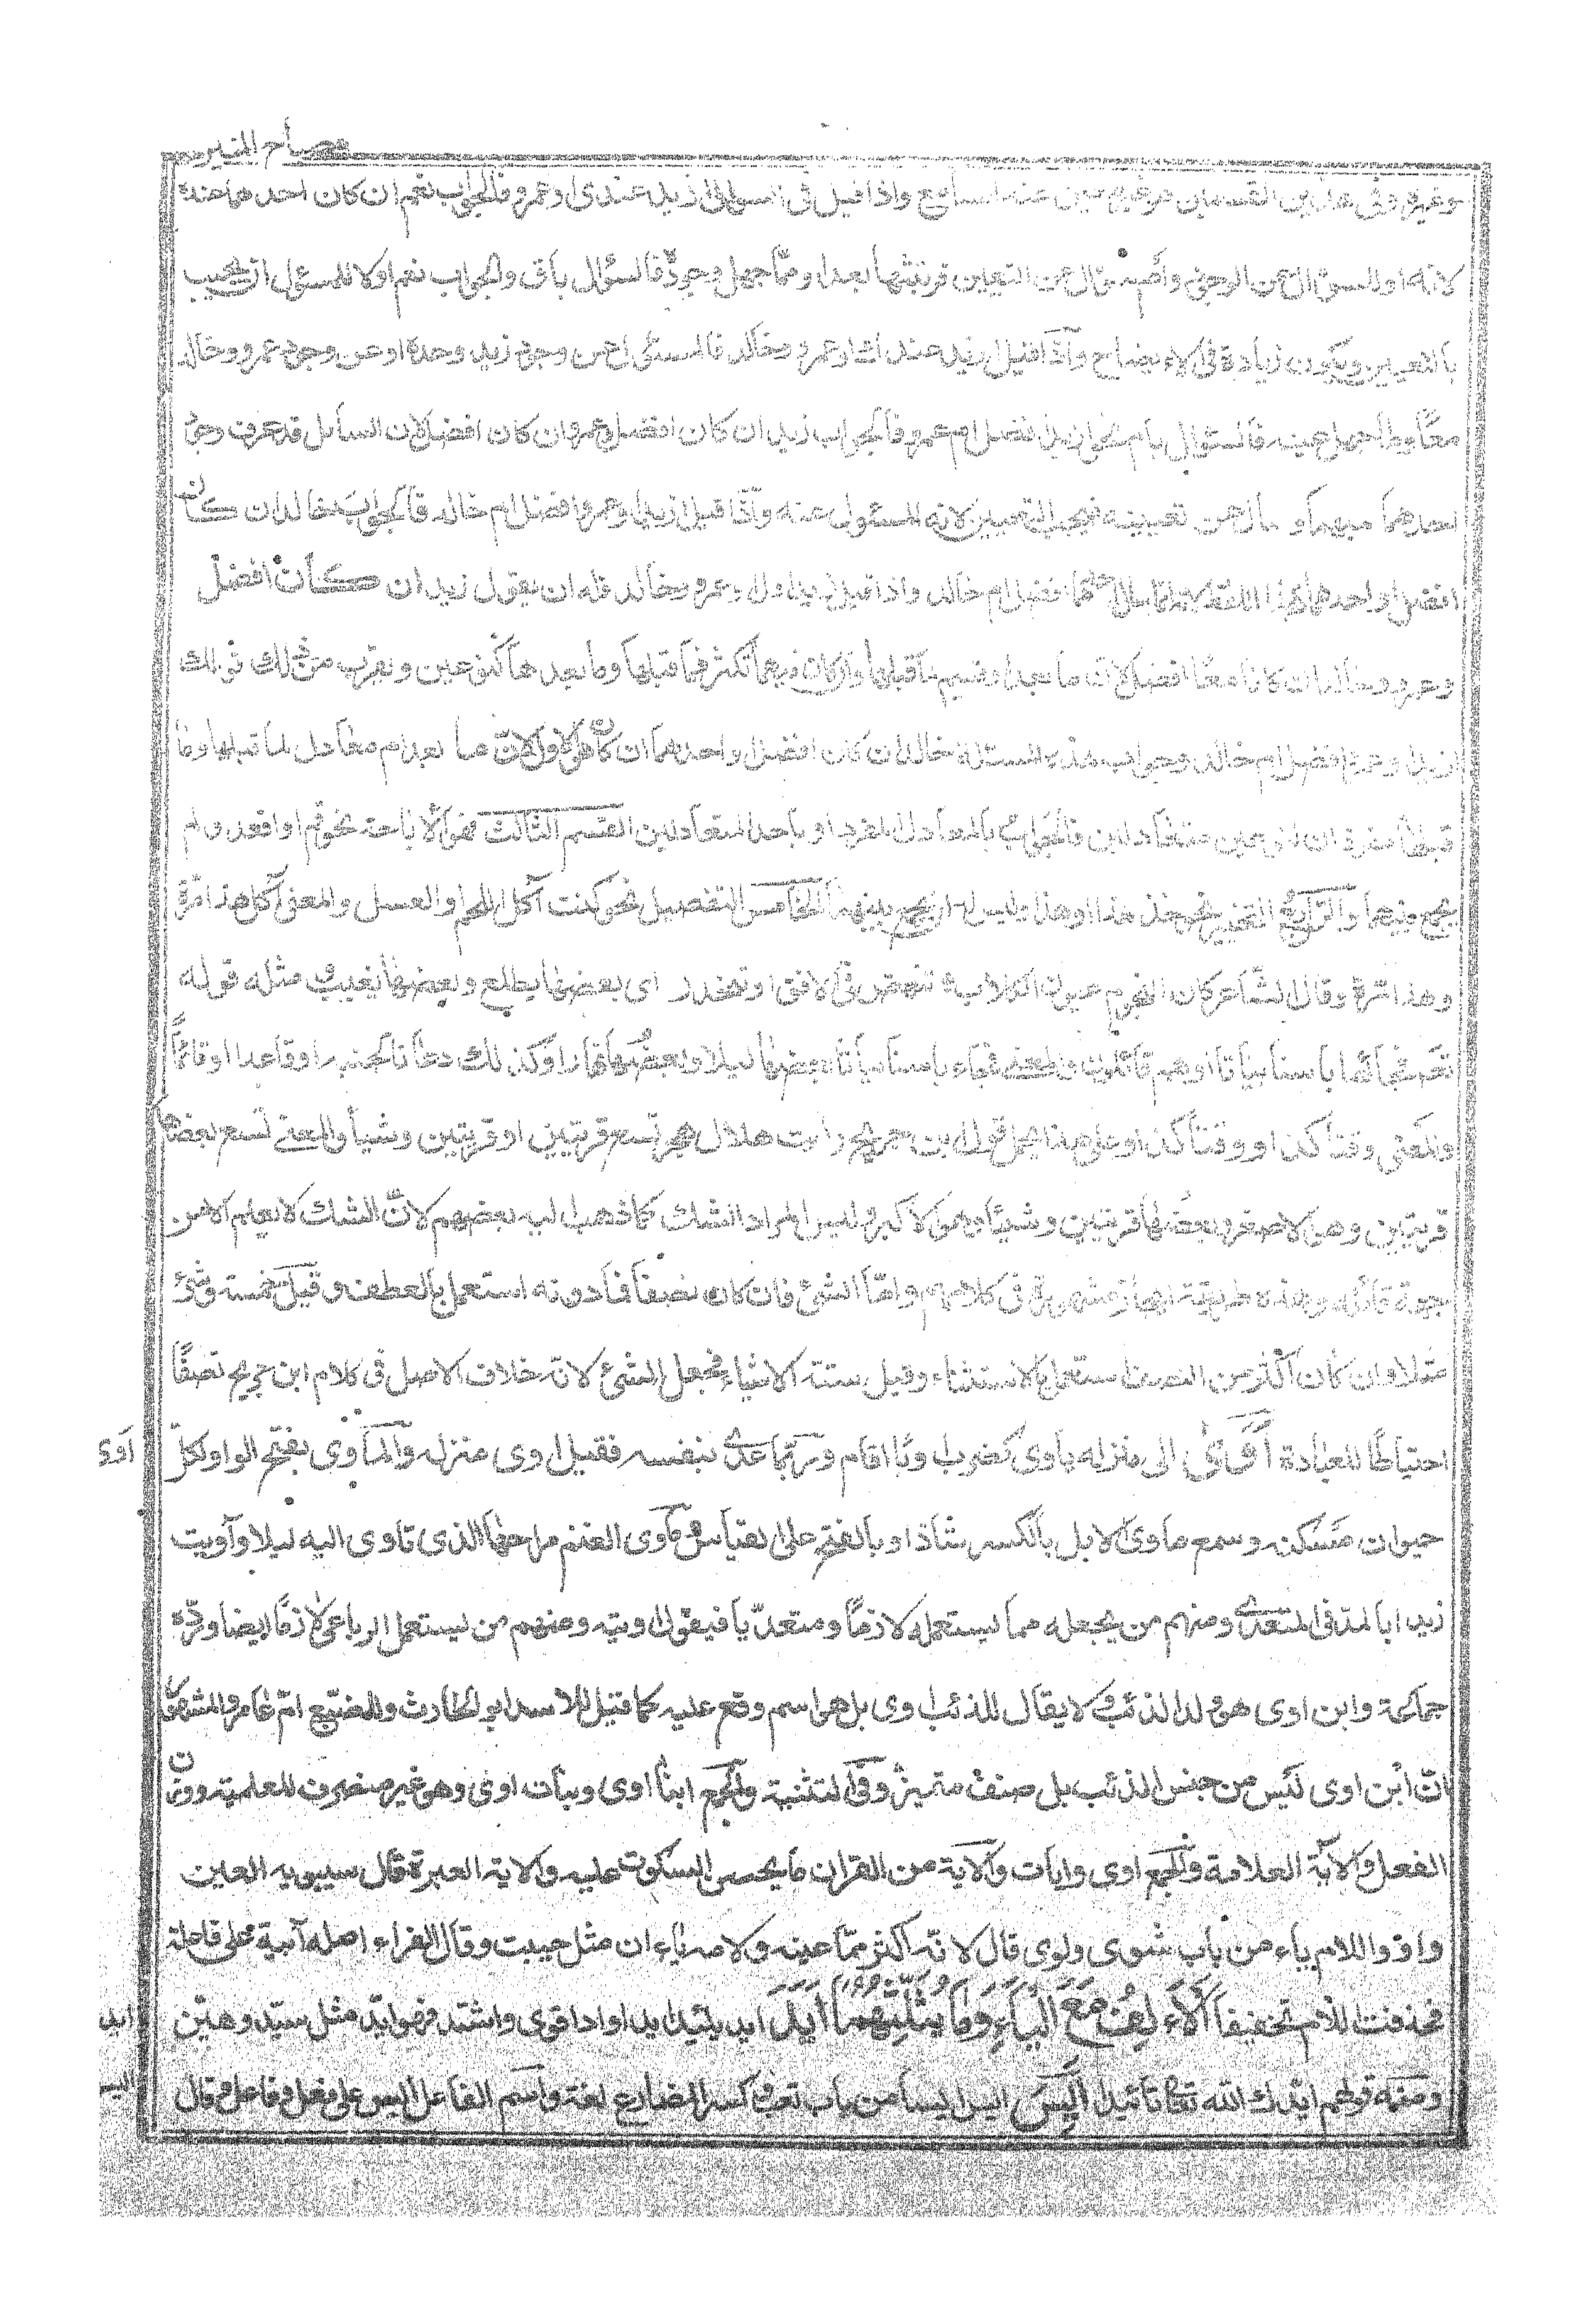 مصباح المنير
وغيره وفي هذين القسمين هو غير معين عند السامع واذا قيل في السؤال ازيد عندك او عمرو فالجواب نعم ان كان احدهما عنده
لانه او السؤال عن الوجود وام سؤال عن التعيين فرتبتها بعد او وما جهل وجوده فالسؤال باو والجواب نعم او لا للمسؤل ان يجيب
بالتعيين ويكون زيادة في الايضاح واذا قيل ازيد عندك او عمرو وخالد فالسؤال عن وجود زيد وحده او عن وجود عمرو وخالد
معًا وما جهل عينه فالسؤال بام نحو ازيد افضل ام عمرو فالجواب زيد ان كان افضل وعمرو ان كان افضل لان السائل قد عرف وجود
احدهما مبهما و سأل عن تعيينه فيجب التعيين لانه المسئول عنه واذا قيل ازيد او عمرو افضل ام خالد فالجواب خالد ان كان
افضل او احدهما بهذا اللفظ لانه انما سأل احدهما افضل ام خالد واذا قيل ازيد افضل او عمرو وخالد فله ان يقول زيد ان كان افضل
وعمرو وخالد ان كانا معًا افضل لان ما بعد او قسيم ما قبلها وان كان فيهما تكثر فما قبلها وما بعدها كنوعين ويقرب من ذلك قولك
ازيد او عمرو افضل ام خالد وجواب هذه المسئلة خالد ان كان افضل واحدهما ان كان هو الاول لان ما بعد ام معادل لما قبلها وما
قبلها مفرد ان او نوعين متعادلين فالجواب بالمعادل المفرد او باحد المتعادلين القسم الثالث هو الاباحة نحو قم او اقعد وله
يجمع بينهما والرابع التخيير نحو خذ هذا او هذا وليس له ان يجمع بينهما الخامس التفصيل نحو كنت آكل اللحم او العسل والمعنى آكل هذا مرة
وهذا مرة وقال الشاعر كان النجوم عيون الكلاب تنهض في الافق او تنحدر اي بعضها يطلع وبعضها يغيب ومثله قوله
تعالى فجائها باسنا بياتا او هم قائلون والمعنى فجاء باسنا بياتا بعضها ليلا وبعضها نهارا وكذلك دعانا لجنبه او قاعدا او قائمًا
والمعنى وقتا كذا او وقتا كذا وعلى هذا يحمل قول ابن جريج رايت هلال هجر تسع قربتين او قربتين وشيأ والمعنى تسع بعضها
قربتين وهو الاصغر وبعضها قربتين وشيئا وهو الاكبر وليس المراد الشك كما ذهب اليه بعضهم لانّ الشك لا يعلم الا من
جهة قائله وهذه طريقة ايجاز مشهورة في كلامهم واما الشئ فان كان نصفا فما دونه استعمل بالعطف وقيل خمسة وشئ
مثلا وان كان اكثر من النصف استعمل بالاستثناء وقيل ستة الا شيأ فجعل الشئ لانه خلاف الاصل في كلام ابن جريج نصفًا
احتياطًا للعبادة أَوَىٰ الى منزله ياوي كضرب اويّا اقام وربما عدي بنفسه فقيل اوى منزله والمأوى بفتح الواو لكل
اوى
حيوان مسكنه وسمع مأوي الابل بالكسر شاذا وبالفتح على القياس ومأوى الغنم مراحها الذي تاوى اليه ليلا وآويت
زيدا بالمد في المتعدي ومنهم من يجعله مما يستعمل لازمًا ومتعدّيا فيقول اويته ومنهم من يستعمل الرباعي لازمًا ايضا وردّه
جماعة وابن اوى هو ولد الذئب ولا يقال للذئب اوى بل هو اسم وقع عليه كما قيل للاسد ابو الحارث وللضبع ام عامر والمشهور
انّ ابن اوى ليس من جنس الذئب بل صنف متميز وفي التثنية والجمع ابنا اوى وبنات اوى وهو غير منصرف للعلمية ووزن
الفعل والاية العلامة والجمع اوي وايات والاية من القران ما يحسن السكوت عليه والاية العبرة قال سيبويه العين
واو واللام ياء من باب شوى ولوى قال لانه اكثر مما عينه ولامه ياءان مثل حييت وقال الفراء اصله آيية على فاعلة
فحذفت اللام تخفيفا اَلْاَلِفُ مَعَ الْيَاءِ وَمَا يُثَلِّثُهُمَا اَيَدَ ايد يئيد ايدا وادا قوى واشتد فهو ايد مثل سيّد وهيّن
ايد
ومنه قولهم ايدك الله تعالى تائيدا اَيِسَ ايس ايسا من باب تعب وكسر المضارع لغة واسم الفاعل ايس على فعل وفاعل وقال
ايس